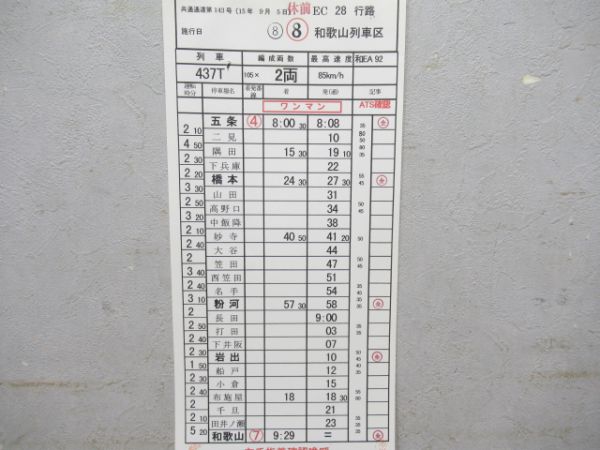 共通通達第 143号 (15年 9月 5日) 休前 EC 28 行路
施行日 ⑧ ⑧ 和歌山列車区
列車 編成両数 最高速度 和EA 92
437T 105× 2両 85km/h
運転時分 停車場名 着発番線 着 発(通) 記事
ワンマン ATS確認
五条 ④ 8:00 30 8:08 35
2 10 二見 10 80 50
4 50 隅田 15 30 19 10 80 35
2 30 下兵庫 22
2 20 橋本 24 30 27 30 55 45
3 30 山田 31
3 00 高野口 34 50 45
2 30 中飯降 38
3 10 妙寺 40 50 41 20 50
2 40 大谷 44
2 20 笠田 47 50 45
3 40 西笠田 51
2 40 名手 54 35
3 10 粉河 57 30 58
2 00 長田 9:00
2 20 打田 03
2 40 下井阪 07
2 30 岩出 10
1 50 船戸 12
2 30 小倉 15
2 40 布施屋 18 18 30
2 20 千旦 21
2 10 田井ノ瀬 23
5 20 和歌山 ⑦ 9:29 =